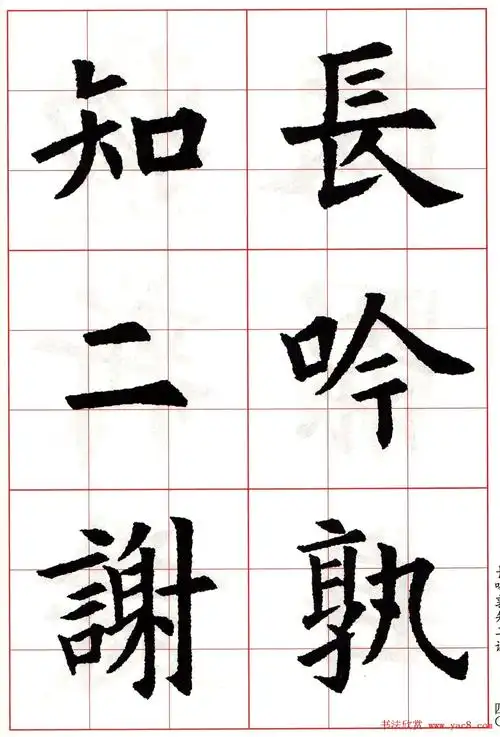 長吟孰
知二謝
书法欣赏 www.yac8.com